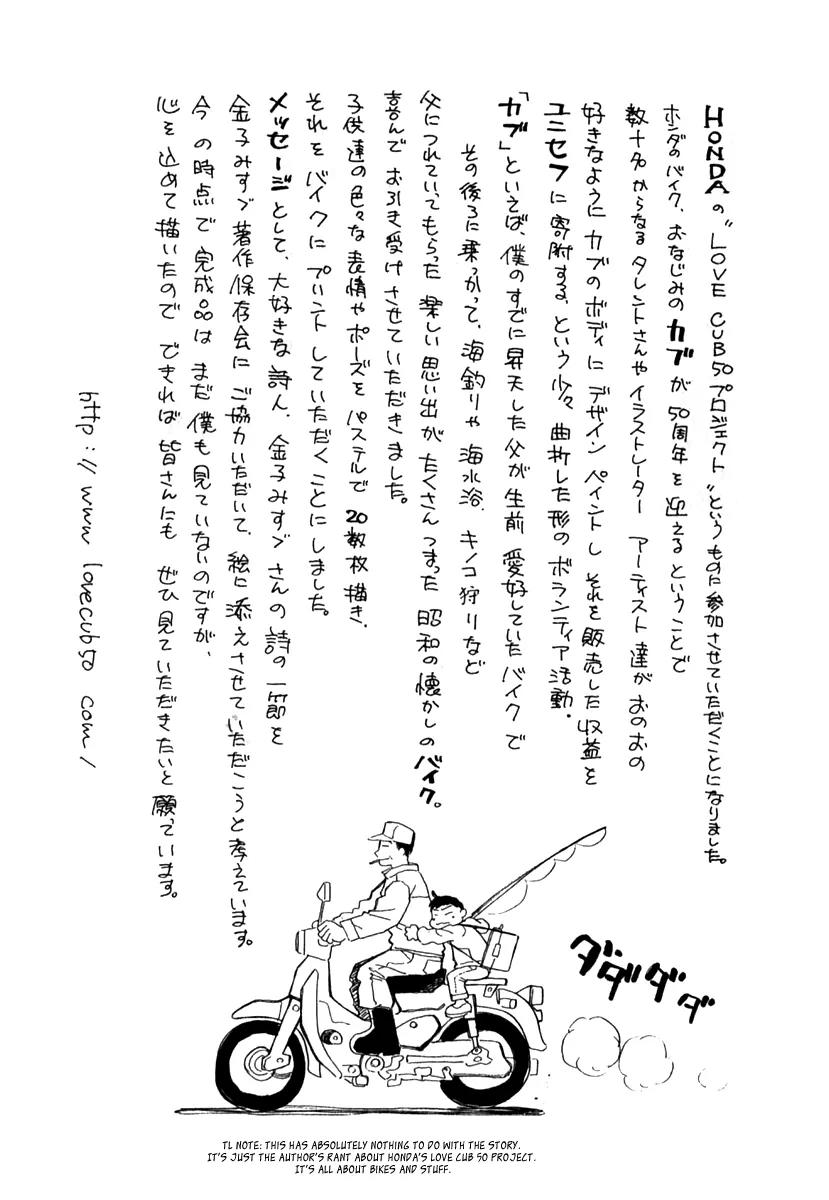 HONDAの〝LOVE CUB 50プロジェクト〟というものに参加させていただくことになりました。
ホンダのバイク、おなじみのカブが50周年を迎えるということで
数十名からなるタレントさんやイラストレーター アーティスト達がおのおの
好きなようにカブのボディにデザインペイントし それを販売した収益を
ユニセフに寄附する、という少々曲折した形のボランティア活動.
「カブ」といえば、僕のすでに昇天した父が生前 愛好していたバイクで
その後ろに乗っかって、海釣りや海水浴. キノコ狩りなど
父につれていってもらった楽しい思い出がたくさんつまった昭和の懐かしのバイク。
喜んでお引き受けさせていただきました。
子供達の色々な表情やポーズをパステルで20数枚描き、
それをバイクにプリントしていただくことにしました。
メッセージとして、大好きな詩人、金子みすゞさんの詩の一節を
金子みすゞ著作保存会にご協力いただいて、絵に添えさせていただこうと考えています。
今の時点で完成品はまだ僕も見ていないのですが、
心を込めて描いたのでできれば皆さんにも ぜひ見ていただきたいと願っています。
http://www lovecub50 com/
ダダダダ
TL NOTE: THIS HAS ABSOLUTELY NOTHING TO DO WITH THE STORY.
IT'S JUST THE AUTHOR'S RANT ABOUT HONDA'S LOVE CUB 50 PROJECT.
IT'S ALL ABOUT BIKES AND STUFF.